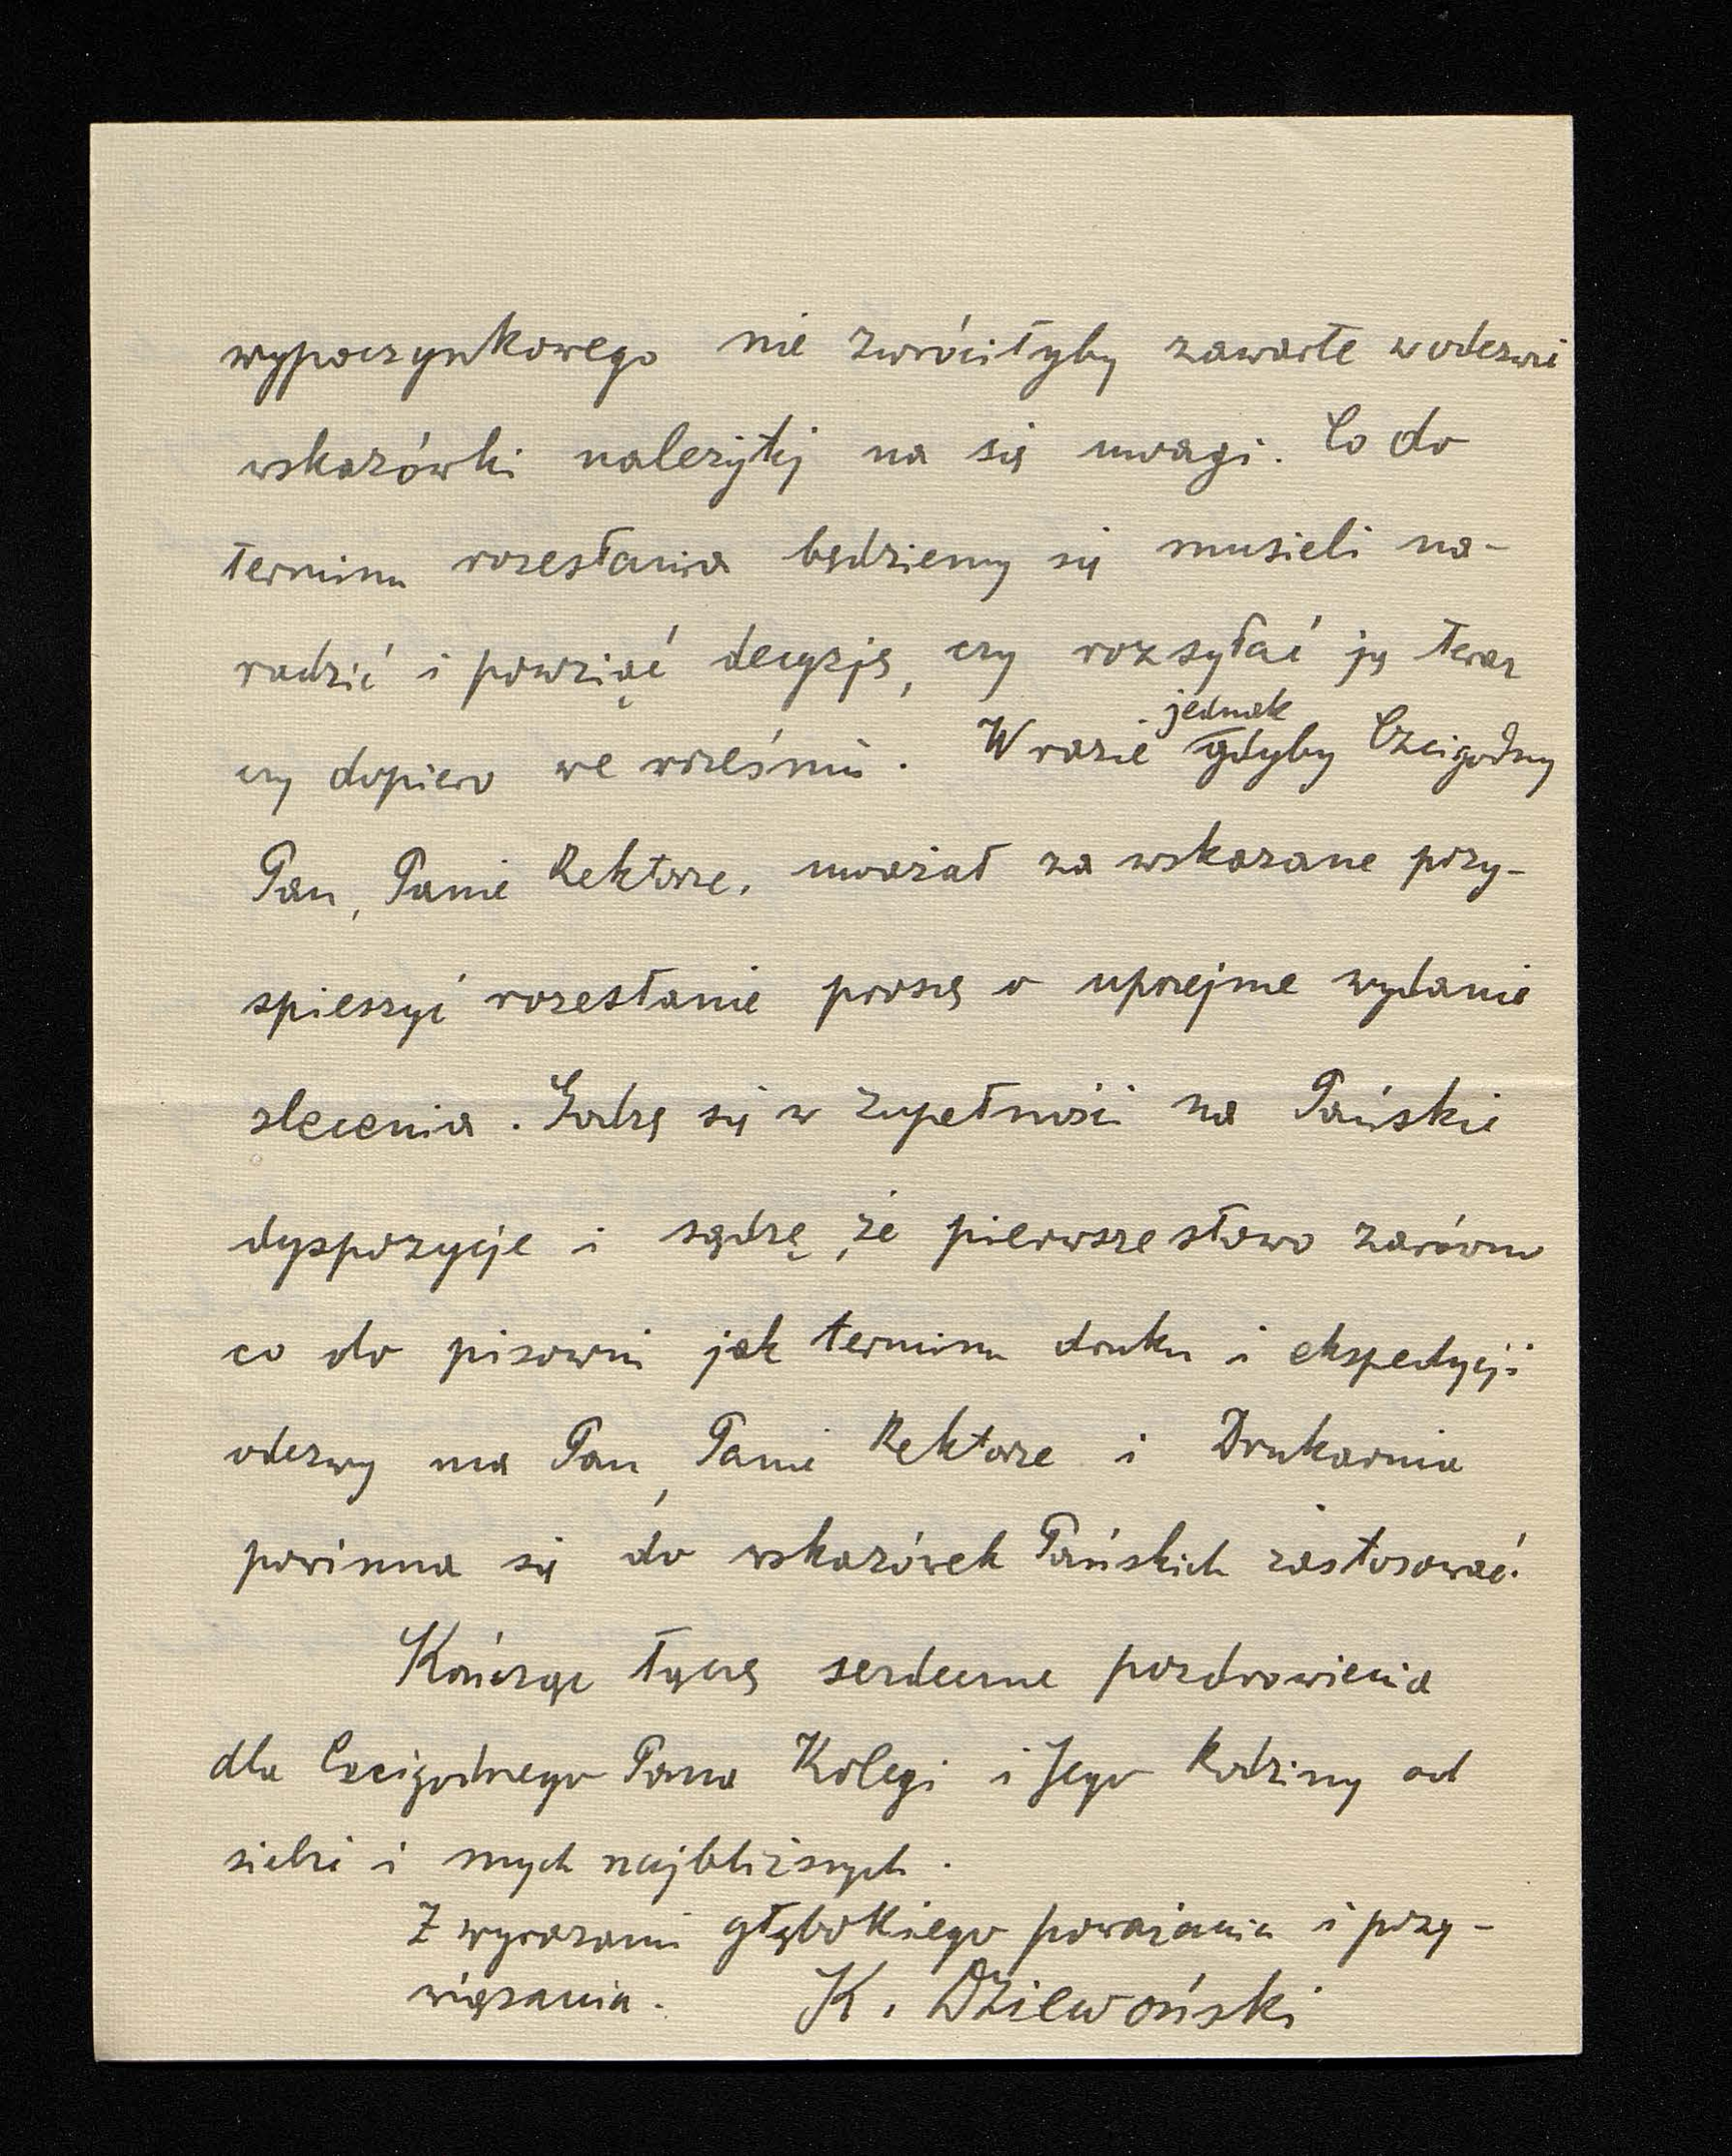 wypoczynkowego nie zwróciłyby zawarte w odezwie
wskazówki należytej na się uwagi. Co do
terminu rozesłania będziemy się musieli na-
radzić i powziąć decyzję, czy rozsyłać ją teraz
czy dopiero we wrześniu. W razie jednak gdyby Czcigodny
Pan, Panie Rektorze, uważał za wskazane przy-
spieszyć rozesłanie proszę o uprzejme wydanie
zlecenia. Godzę się w zupełności na Pańskie
dyspozycje i sądzę, że pierwsze słowo zarówno
co do pisowni jak terminu druku i ekspedycji
odezwy ma Pan, Panie Rektorze i Drukarnia
powinna się do wskazówek Pańskich zastosować.
Kończąc łączę serdeczne pozdrowienia
dla Czcigodnego Pana Kolegi i Jego Rodziny od
siebie i mych najbliższych.
Z wyrazami głębokiego poważania i przy-
wiązania. K. Dziewoński